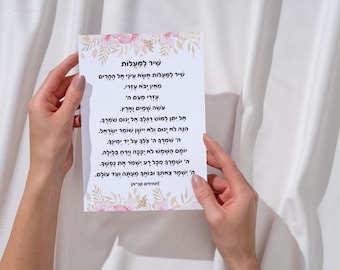 שִׁיר לַמַּעֲלוֹת
שִׁיר לַמַּעֲלוֹת אֶשָּׂא עֵינַי אֶל הֶהָרִים
מֵאַיִן יָבֹא עֶזְרִי.
עֶזְרִי מֵעִם ה'
עֹשֵׂה שָׁמַיִם וָאָרֶץ.
אַל יִתֵּן לַמּוֹט רַגְלֶךָ אַל יָנוּם שֹׁמְרֶךָ.
הִנֵּה לֹא יָנוּם וְלֹא יִישָׁן שׁוֹמֵר יִשְׂרָאֵל.
ה' שֹׁמְרֶךָ ה' צִלְּךָ עַל יַד יְמִינֶךָ.
יוֹמָם הַשֶּׁמֶשׁ לֹא יַכֶּכָּה וְיָרֵחַ בַּלָּיְלָה.
ה' יִשְׁמָרְךָ מִכָּל רָע יִשְׁמֹר אֶת נַפְשֶׁךָ.
ה' יִשְׁמָר צֵאתְךָ וּבוֹאֶךָ מֵעַתָּה וְעַד עוֹלָם.
(תהילים קכ"א)